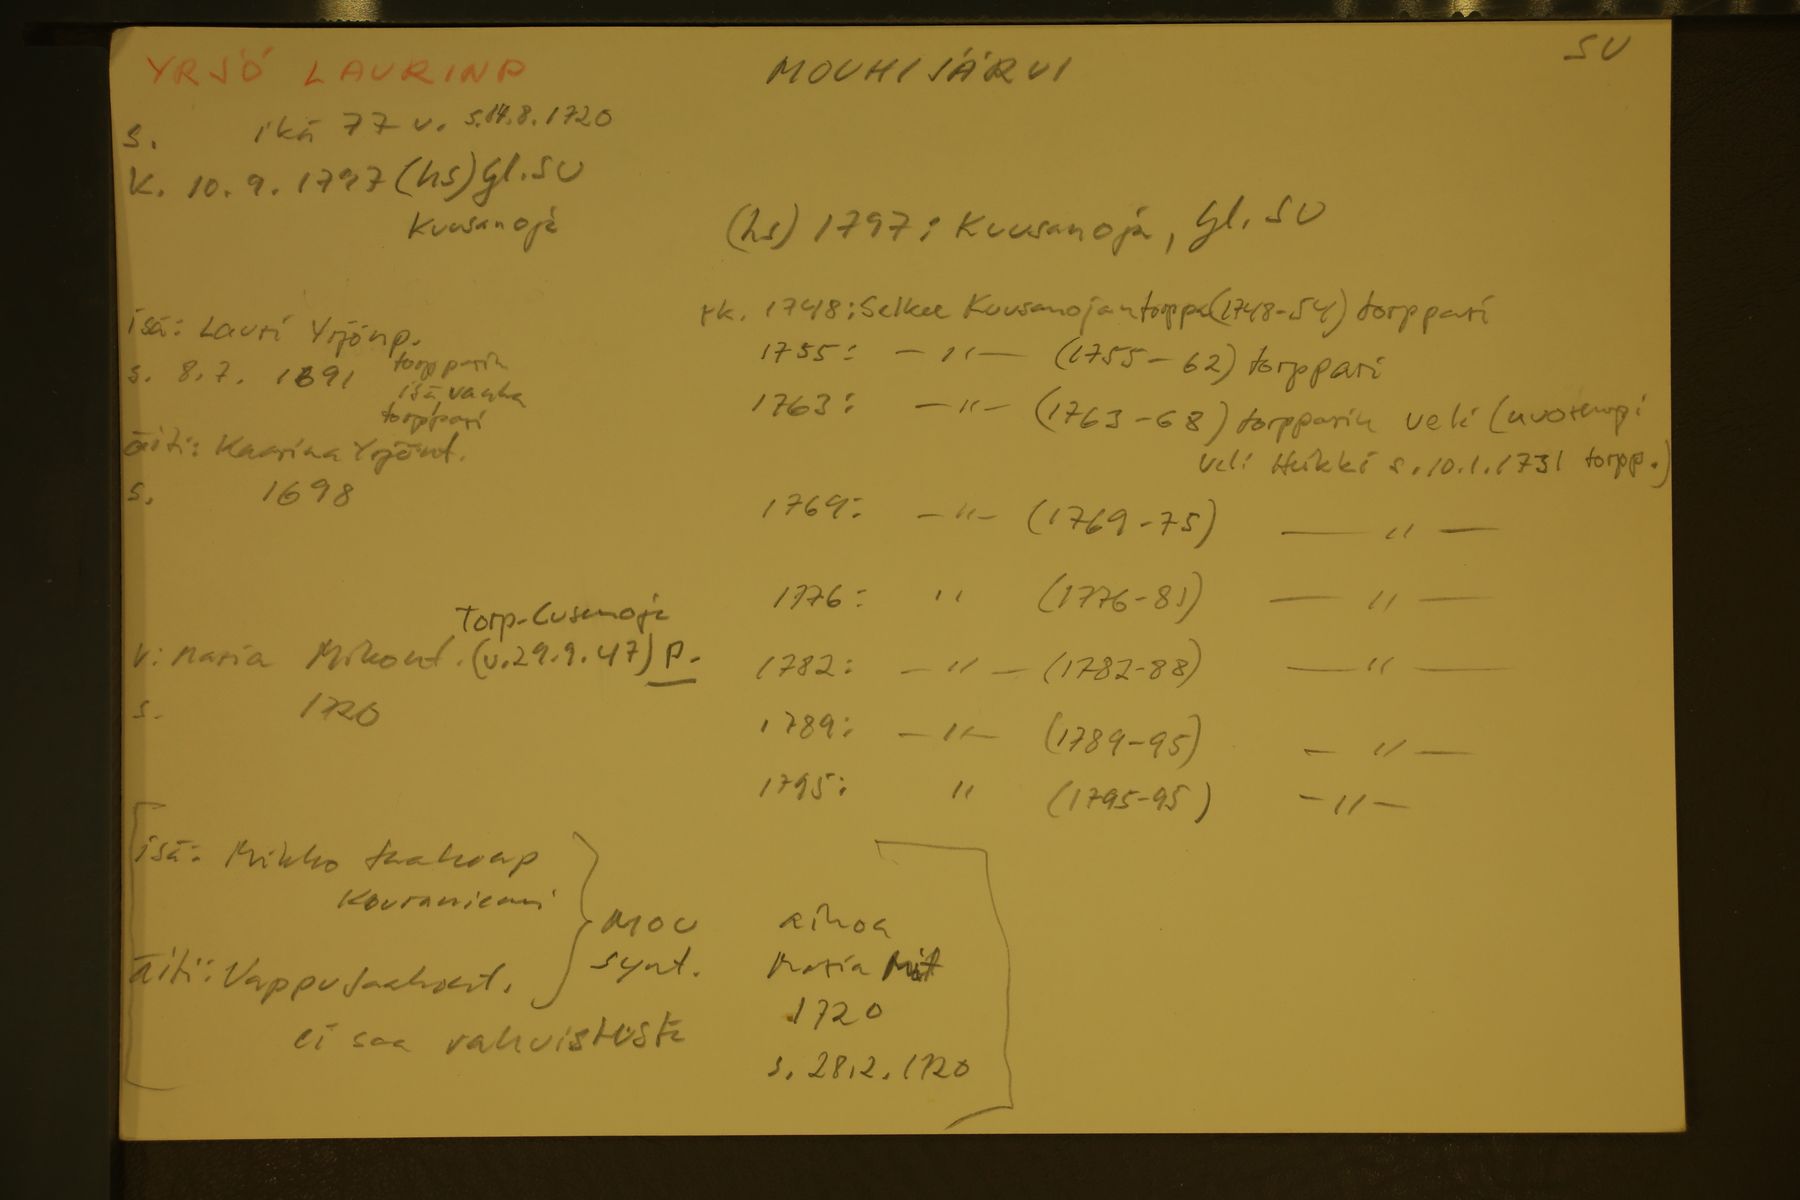 YRJÖ LAURINP
MOUHIJÄRVI
SU
s. ikä 77 v. s.14.8.1720
K. 10.9.1797 (hs) Yl.SU
Kuusanoja
(hs) 1797: Kuusanoja, Yl.SU
isä: Lauri Yrjönp.
s. 8.7. 1691 torpparin
isä vanha
torppari
äiti: Kaarina Yrjönt.
s. 1698
rk. 1748: Selkee Kuusanojan torppa (1748-54) torppari
1755: -"- (1755-62) torppari
1763: -"- (1763-68) torpparin veli (nuorempi
veli Heikki s.10.1.1731 torpp.)
1769: -"- (1769-75) -"-
1776: " (1776-81) -"-
1782: -"- (1782-88) -"-
1789: -"- (1789-95) -"-
1795: " (1795-95) -"-
Torp. Cusanoja
v: Maria Mikont. (v.29.9.47) P.
s. 1720
isä: Mikko Jaakonp
Kouraniemi
äiti: Vappu Jaakont.
ei saa vahvistusta
MOU
synt.
ainoa
Maria Mit
1720
s. 28.2.1720